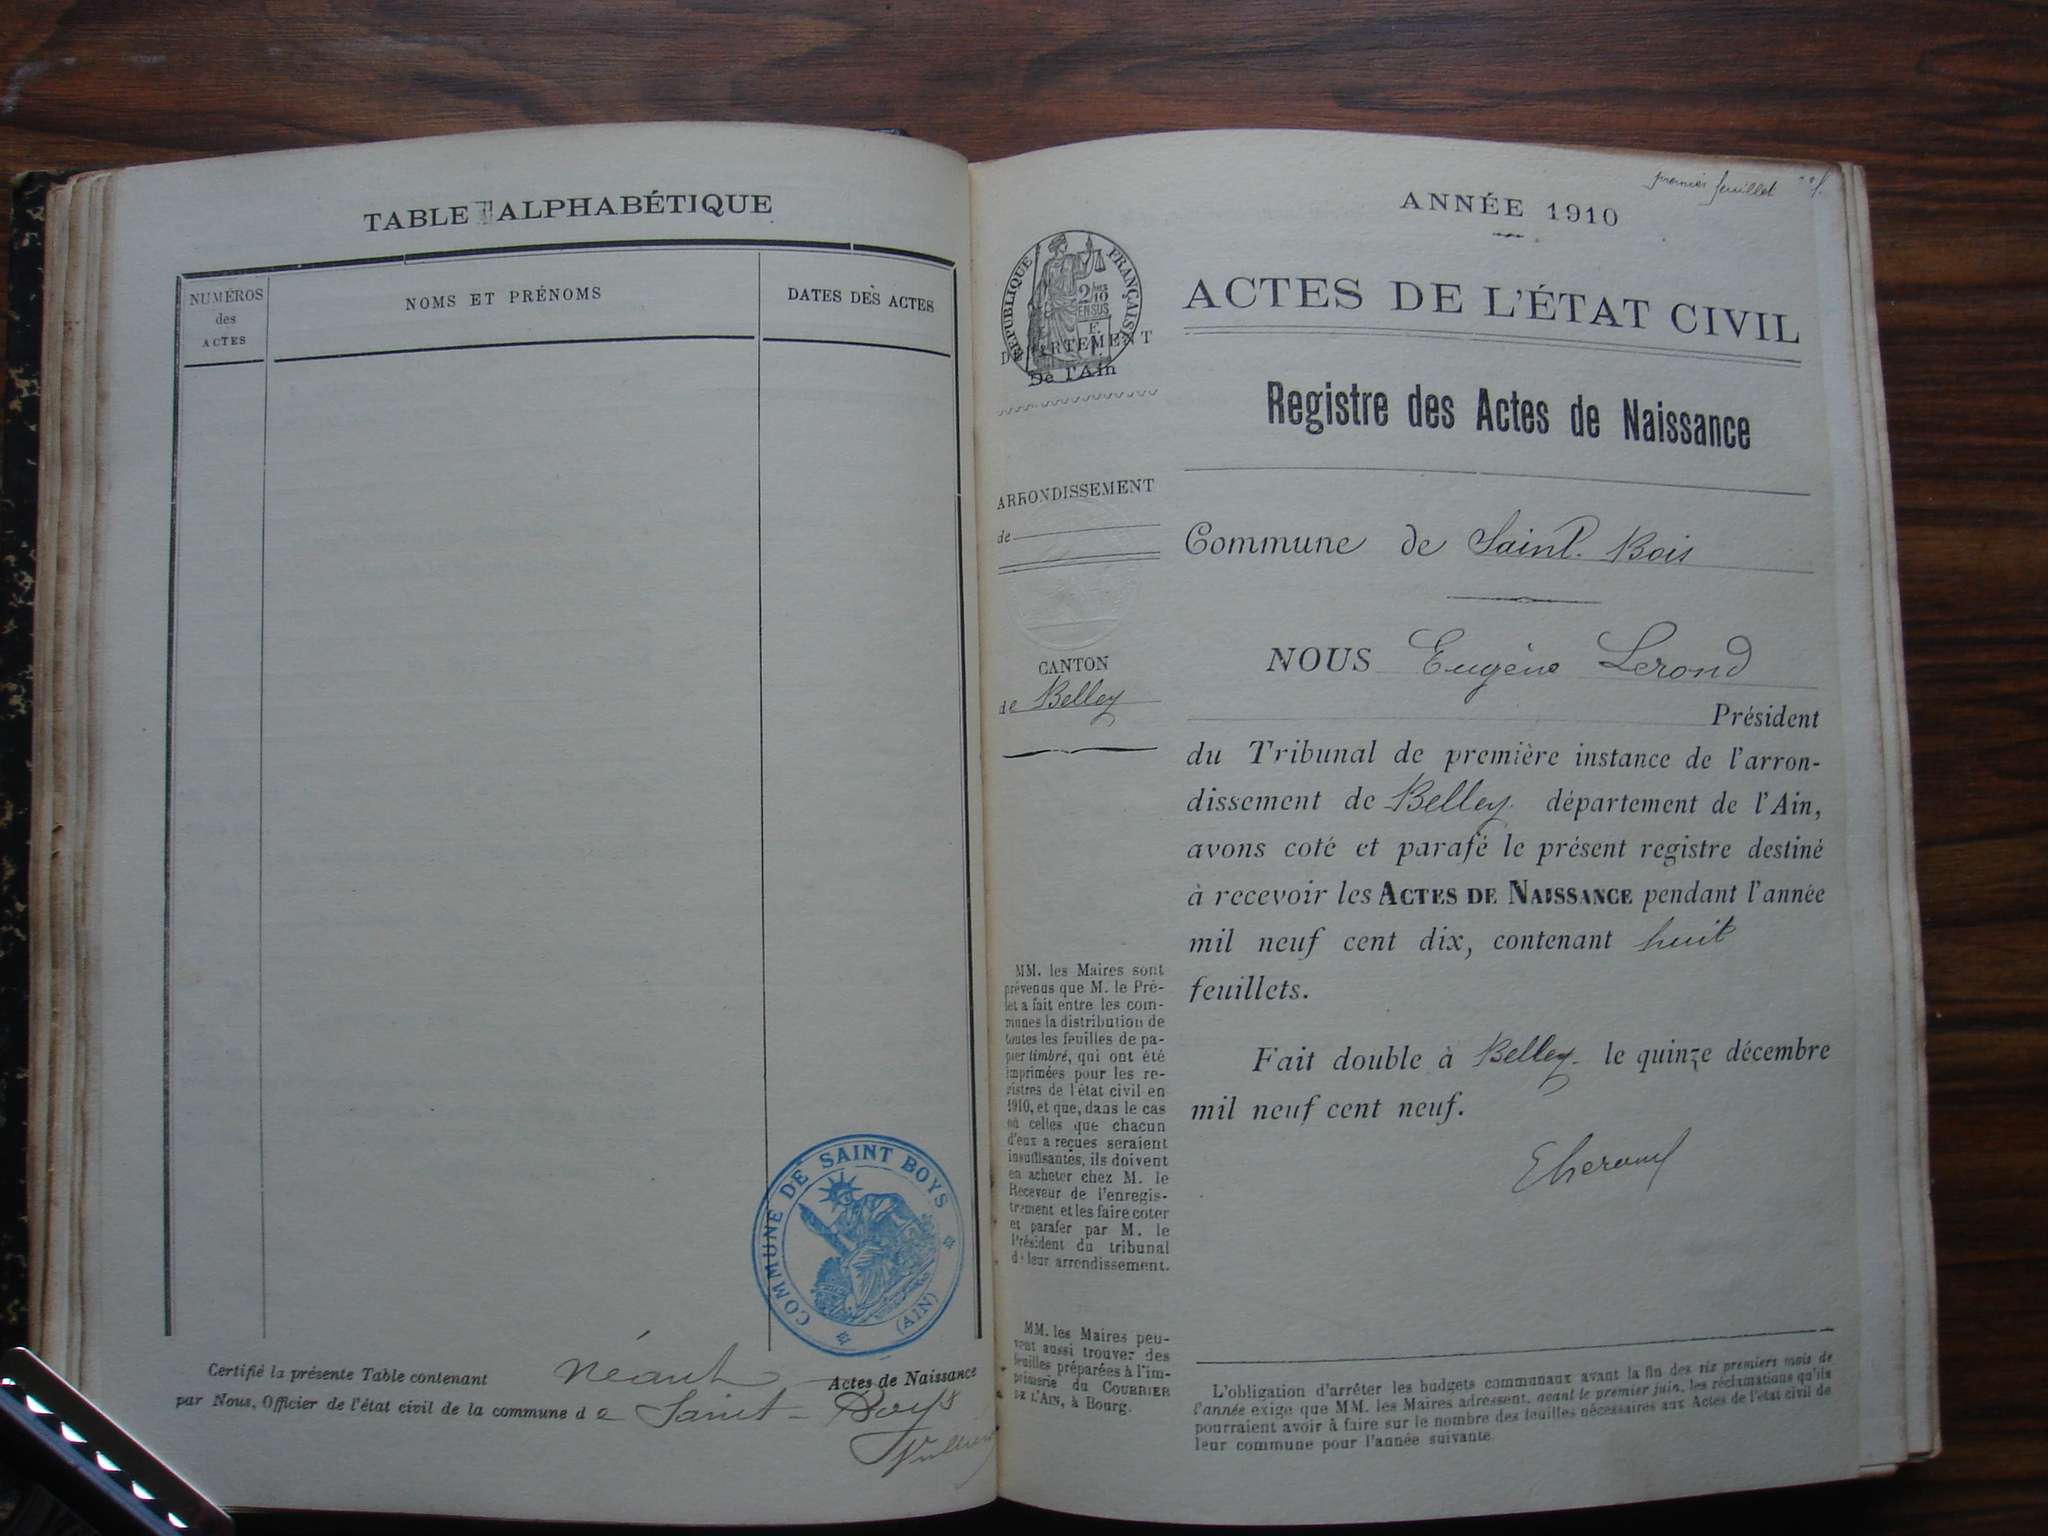 TABLE ALPHABÉTIQUE
NUMÉROS
des
ACTES
NOMS ET PRÉNOMS
DATES DES ACTES
COMMUNE DE SAINT BOYS
(AIN)
Certifié la présente Table contenant néant Actes de Naissance
par Nous, Officier de l'état civil de la commune de Saint-Boys
premier feuillet
ANNÉE 1910
RÉPUBLIQUE FRANÇAISE
DÉPARTEMENT
De l'Ain
ACTES DE L'ÉTAT CIVIL
Registre des Actes de Naissance
ARRONDISSEMENT
de
Commune de Saint. Bois
CANTON
de Belley
NOUS Eugène Lerond
Président
du Tribunal de première instance de l'arron-
dissement de Belley département de l'Ain,
avons coté et parafé le présent registre destiné
à recevoir les ACTES DE NAISSANCE pendant l'année
mil neuf cent dix, contenant huit
feuillets.
Fait double à Belley le quinze décembre
mil neuf cent neuf.
MM. les Maires sont
prévenus que M. le Pré-
fet a fait entre les com-
munes la distribution de
toutes les feuilles de pa-
pier timbré, qui ont été
imprimées pour les re-
gistres de l'état civil en
1910, et que, dans le cas
où celles que chacun
d'eux a reçues seraient
insuffisantes, ils doivent
en acheter chez M. le
Receveur de l'enregis-
trement et les faire coter
et parafer par M. le
Président du tribunal
de leur arrondissement.
MM. les Maires peu-
vent aussi trouver des
feuilles préparées à l'im-
primerie du COURRIER
DE L'AIN, à Bourg.
L'obligation d'arrêter les budgets communaux avant la fin des six premiers mois de
l'année exige que MM. les Maires adressent, avant le premier juin, les réclamations qu'ils
pourraient avoir à faire sur le nombre des feuilles nécessaires aux Actes de l'état civil de
leur commune pour l'année suivante.